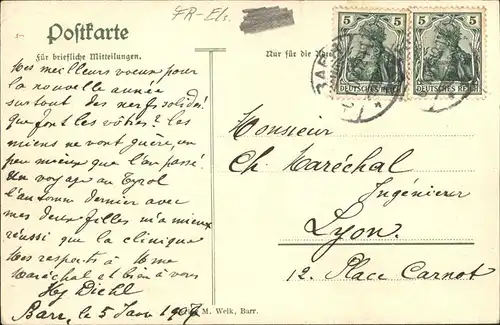 FR-Els.
Postkarte
Für briefliche Mitteilungen.
Nur für die
5 5 5 5
DEUTSCHES REICH DEUTSCHES REICH
BARR
Mes meilleurs voeux pour
la nouvelle année
surtout des nerfs solides!
que font les vôtres? les
miens ne vont guère, un
peu mieux que l'an passé.
Un voyage au Tyrol
l'automne dernier avec
mes deux filles m'a mieux
réussi que la clinique
Mes respects à Mme
Maréchal et bien à vous
Hy Diehl
Barr, le 5 Janv 1907
M. Welk, Barr.
Monsieur
Ch. Maréchal
Ingénieur
Lyon.
12. Place Carnot